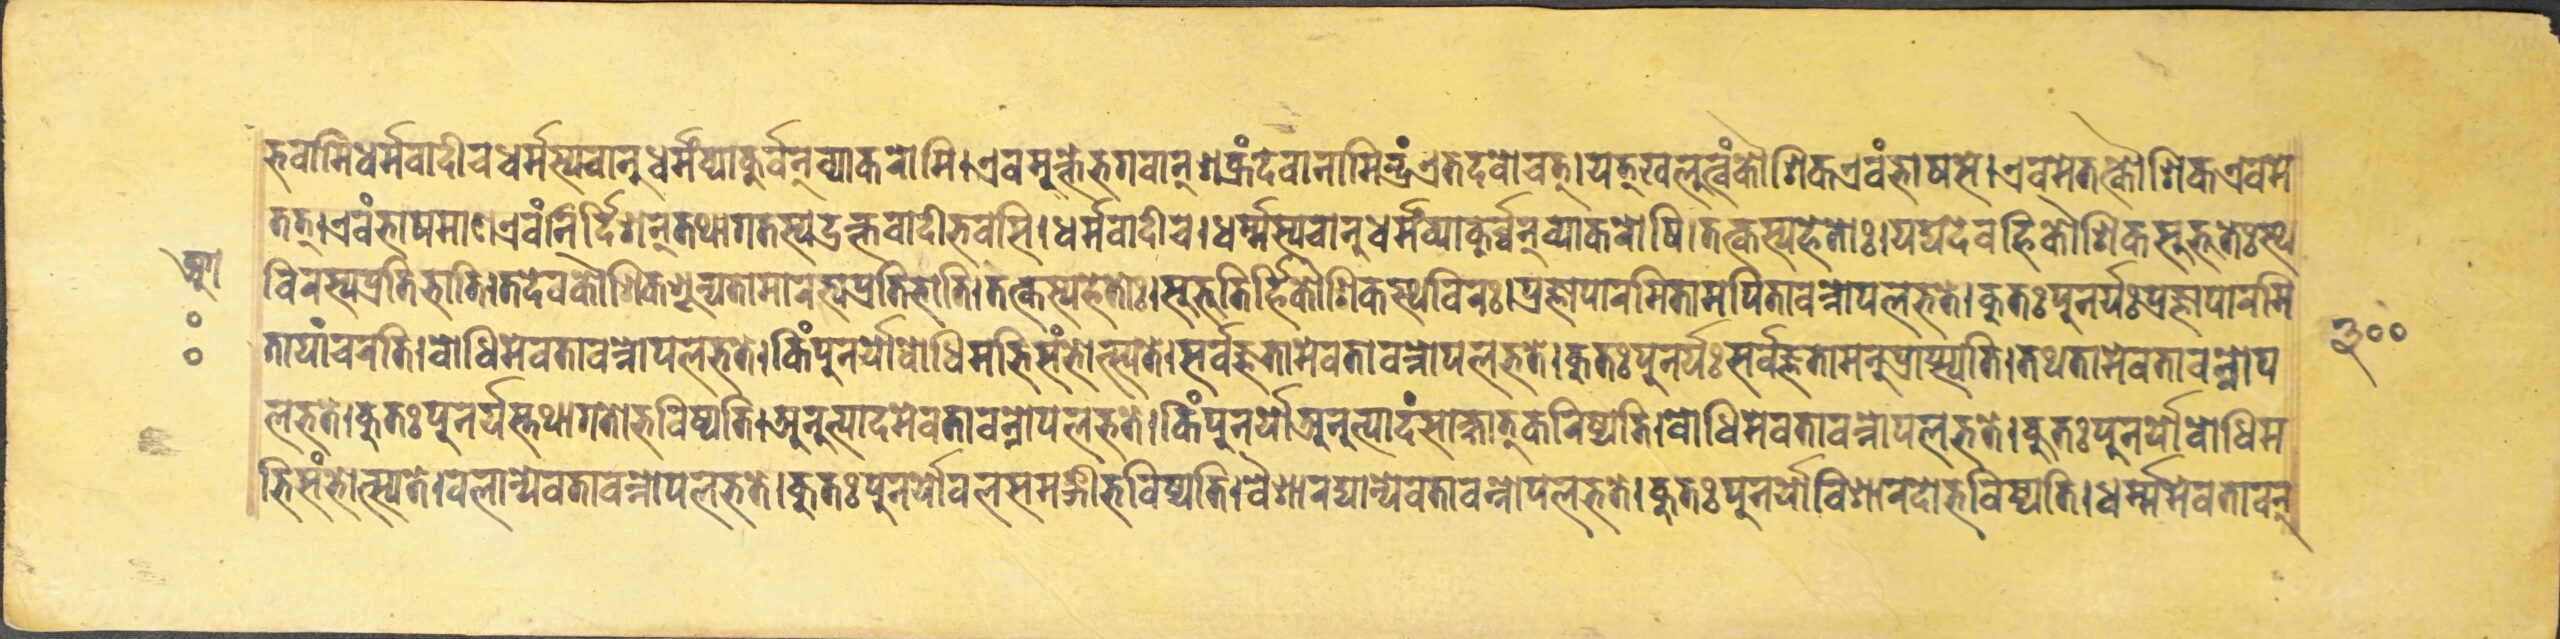 भवामिधर्मवादीचधर्मस्यचानुधर्मंव्याकुर्वन्व्याकरोमि।एवमुक्तेभगवान्शक्रंदेवानामिन्द्रंएतदवोचत्।यत्खलुत्वंकौशिकएवंभाषसे।एवमेतत्कौशिकएवमे
तत्।एवंभाषमाणएवंनिर्दिशन्तथागतस्यउक्तवादीभवसि।धर्मवादीच।धर्म्मस्यचानुधर्मंव्याकुर्व्वन्व्याकरोषि।तत्कस्यहेतोः।यद्यदेवहिकौशिकसुभूतेःस्थ
विरस्यप्रतिभाति।तदेवकौशिकशून्यतामारभ्यप्रतिभाति।तत्कस्यहेतोः।सुभूतिर्हिकौशिकस्थविरः।प्रज्ञापारमितामपितावन्नोपलभते।कुतःपुनर्यःप्रज्ञापारमि
तायांचरति।बोधिमेवतावन्नोपलभते।किंपुनर्योबोधिमभिसंभोत्स्यते।सर्वज्ञतामेवतावन्नोपलभते।कुतःपुनर्यःसर्वज्ञतामनुप्राप्स्यति।तथतामेवतावन्नोप
लभते।कुतःपुनर्यस्तथागतोभविष्यति।अनुत्पादमेवतावन्नोपलभते।किंपुनर्योअनुत्पादंसाक्षात्करिष्यति।बोधिमेवतावन्नोपलभते।कुतःपुनर्योबोधिम
भिसंभोत्स्यते।बलान्येवतावन्नोपलभते।कुतःपुनर्योबलसमङ्गीभविष्यति।वैशारद्यान्येवतावन्नोपलभते।कुतःपुनर्योविशारदोभविष्यति।धर्म्ममेवतावन्
३००